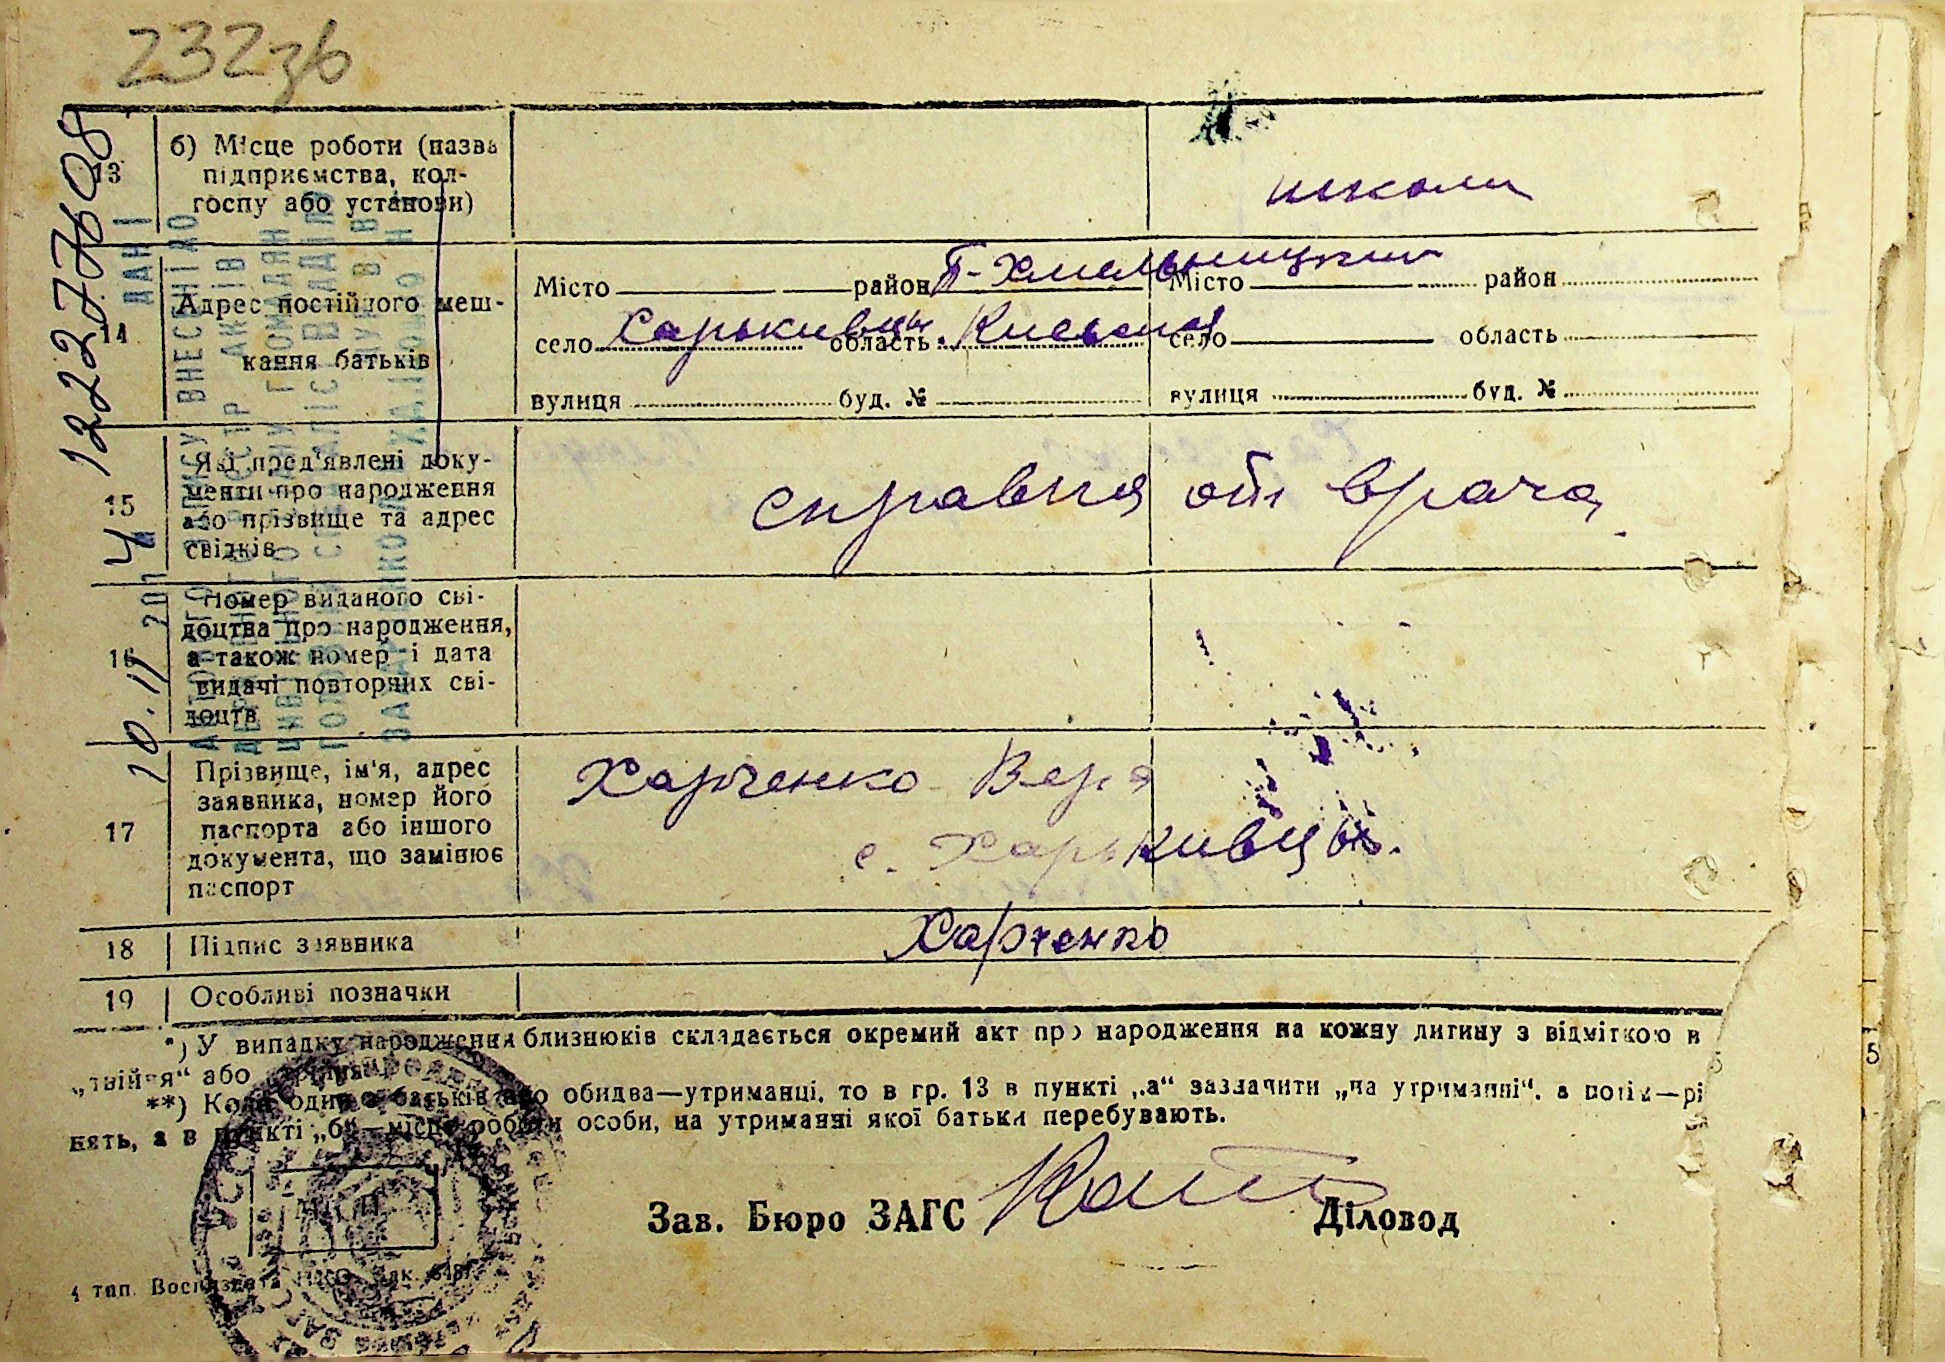 232зв
13
б) Місце роботи (назва
підприємства, кол-
госпу або установи)
школи
14
Адрес постійного меш-
кання батьків
Місто район П-Хмельницкий
село Харькивцы область Киевская
вулиця буд. №
Місто район
село область
вулиця буд. №
15
Які пред'явлені доку-
менти про народження
або прізвище та адрес
свідків
справка от врача
16
Номер виданого сві-
доцтва про народження,
а також номер і дата
видачі повторних сві-
доцтв
17
Прізвище, ім'я, адрес
заявника, номер його
паспорта або іншого
документа, що замінює
паспорт
Харченко Вера
с. Харькивцы.
18
Підпис заявника
Харченко
19
Особливі позначки
*) У випадку народження близнюків складається окремий акт про народження на кожну дитину з відміткою в
„двійня“ або
**) Коли один з батьків або обидва—утриманці, то в гр. 13 в пункті „а“ зазначити „на утриманні“, а потім—рі
нять, а в пункті „б“—місце роботи особи, на утриманні якої батьки перебувають.
Зав. Бюро ЗАГС
Діловод
4 тип.
12227768